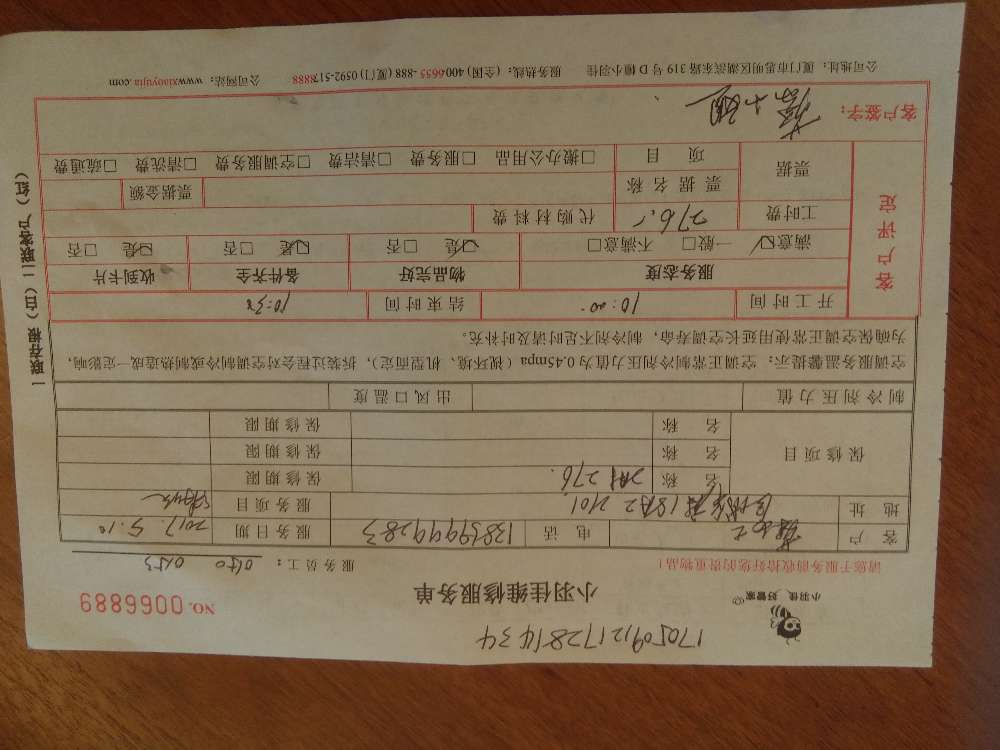 1705091217281434
小羽佳 好管家
小羽佳维修服务单
NO. 0066889
请您于服务前收拾好您的贵重物品！
服务员工： 0150 0153
客户 电话 13859949283 服务日期 2017.5.10
地址 2401 服务项目
保修项目 名称 276. 保修期限
名称 保修期限
名称 保修期限
制冷剂压力值 出风口温度
空调服务温馨提示：空调正常制冷剂压力值为0.45mpa（视环境、机型而定），拆装过程会对空调制冷或制热造成一定影响，
为确保空调正常使用延长空调寿命，制冷剂不足时请及时补充。
客户评定
开工时间 10:00 结束时间 10:30
服务态度 物品完好 备件齐全 收到卡片
满意☑ 一般□ 不满意□ ☑是 □否 ☑是 □否 ☑是 □否
工时费 276. 代购材料费
票据 票据名称 票据金额
项目 □搬办公用品 □服务费 □清洁费 □空调服务费 □清洗费 □疏通费
客户签字：
公司地址：厦门市思明区湖滨东路319号D幢小羽佳 服务热线：(全国) 400-6655-888 (厦门) 0592-5178888 公司网站：www.xiaoyujia.com
一联存根（白）二联客户（红）